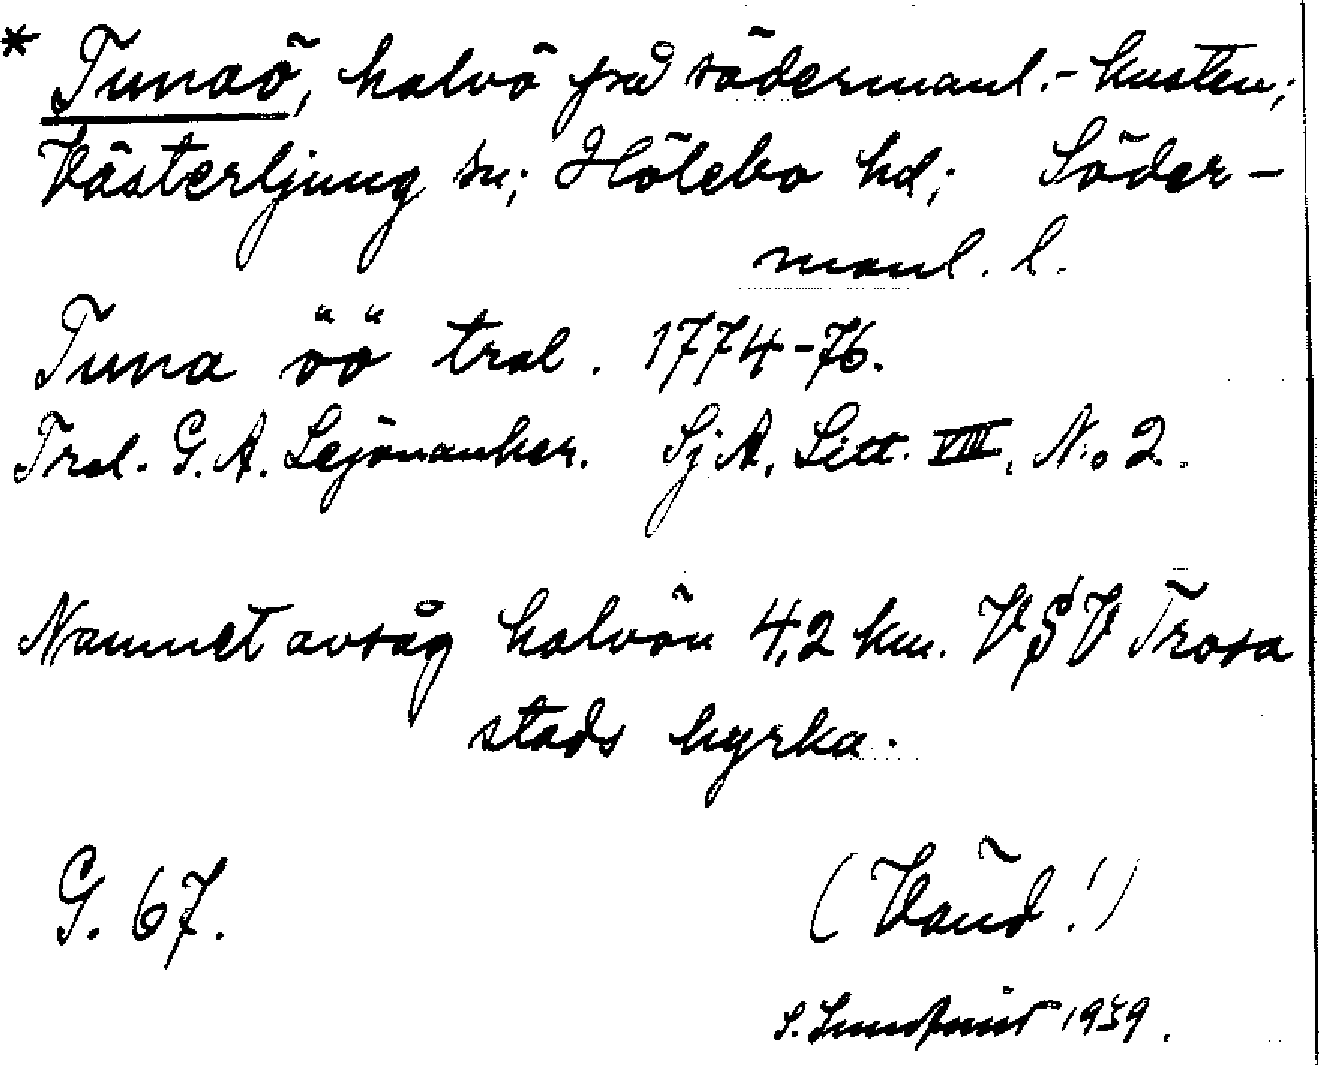 * Tunaö, halvö på södermanl.-kusten;
Västerljung sn; Hölebo hd; Söder-
manl. l.
Tuna öö tral. 1774-76.
Tral. G. A. Lejonanker. Sj A. Litt. VIII, N:o 2.
Namnet avsåg halvön 4,2 km. VSV Trosa
stads kyrka.
G. 67.
(Vänd!)
S. Lundqvist 1939.